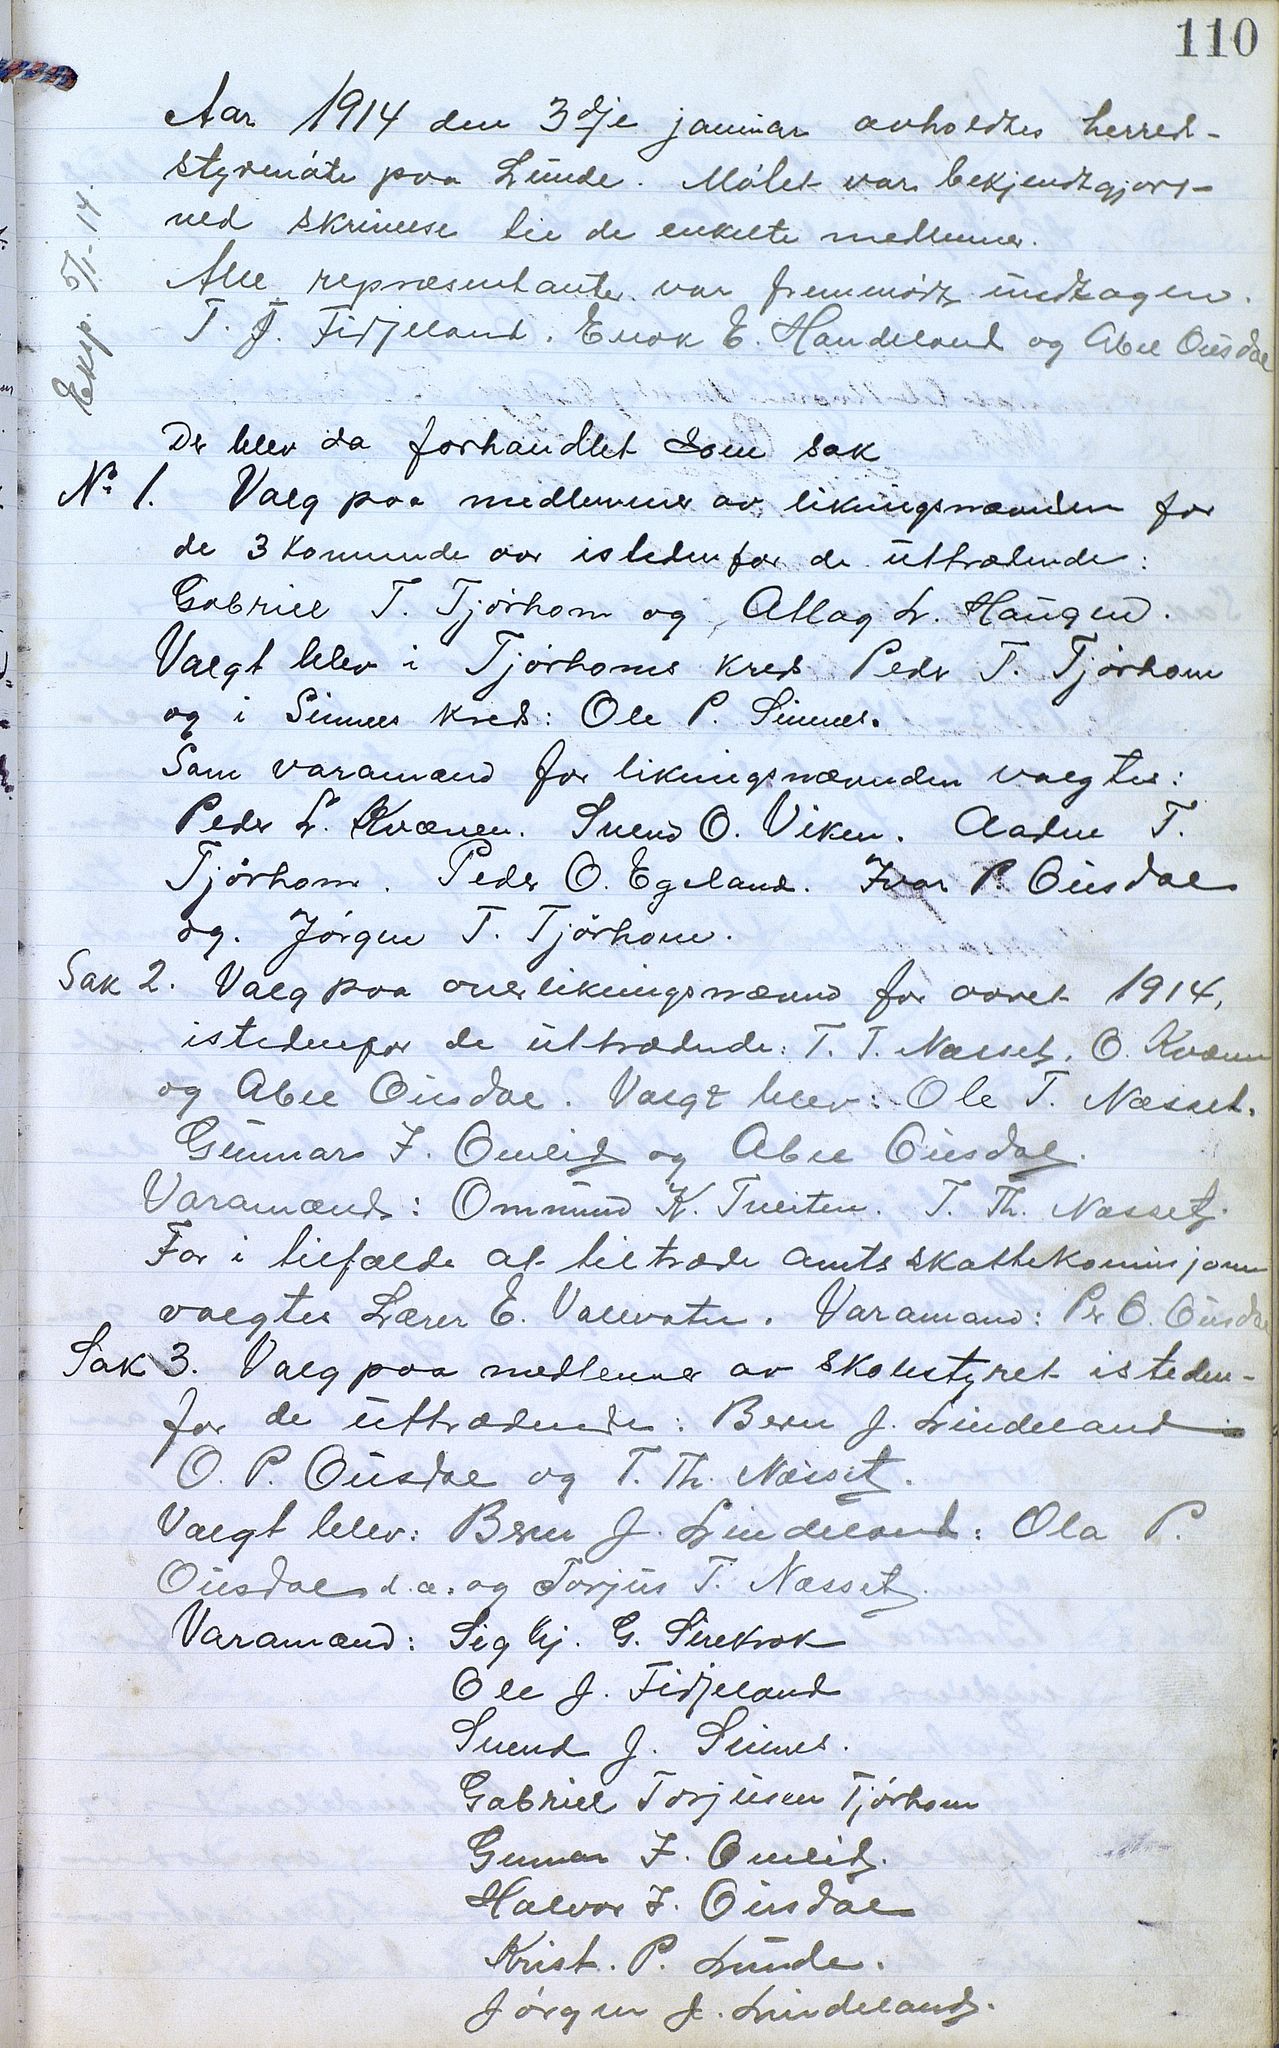 110
Aar 1914 den 3dje januar avholdtes herred-
styremøte paa Lunde. Møtet var bekjendtgjort
ved skrivelse til de enkelte medlemmer.
Alle repræsentanter var fremmødt undtagen.
T. J. Fidjeland. Enok E. Handeland og Abel Ousdal
Eksp. 5/1-14.
Der blev da forhandlet som sak
No 1. Valg paa medlemmer av likningsnævnden for
de 3 kommende aar istedenfor de uttrædende:
Gabriel T. Tjørhom og Atlag L. Haugen.
Valgt blev i Tjørhoms kreds Peder T. Tjørhom
og i Sinnes kreds: Ole P. Sinnes.
Som varamænd for likningsnævnden valgtes:
Peder L. Kvænen. Svend O. Viken. Aadne T.
Tjørhom. Peder O. Egeland. Ivar P. Ousdal
og. Jørgen T. Tjørhom.
Sak 2. Valg paa overlikningsnævnd for aaret 1914,
istedenfor de uttrædende: T. T. Næsset, O. Kvænen
og Abel Ousdal. Valgt blev: Ole T. Næsset.
Gunnar F. Omlid og Abel Ousdal.
Varamænd: Ommund K. Tveiten. T. Th. Næsset.
For i tilfælde at tiltræde amtsskattekommisjonen
valgtes Lærer E. Vallevatn. Varamand: Pr O. Ousdal
Sak 3. Valg paa medlemmer av skolestyret isteden-
for de uttrædende: Bern J. Lindeland
O. P. Ousdal og T. Th. Næsset.
Valgt blev: Bern J. Lindeland: Ola P.
Ousdal d.æ. og Torjus T. Næsset.
Varamænd: Sig Gj. G. Sirekrok
Ole J. Fidjeland
Svend J. Sinnes.
Gabriel Torjusen Tjørhom
Gunnar F. Omlid.
Halvor F. Ousdal
Krist. P. Lunde.
Jørgen J. Lindeland.